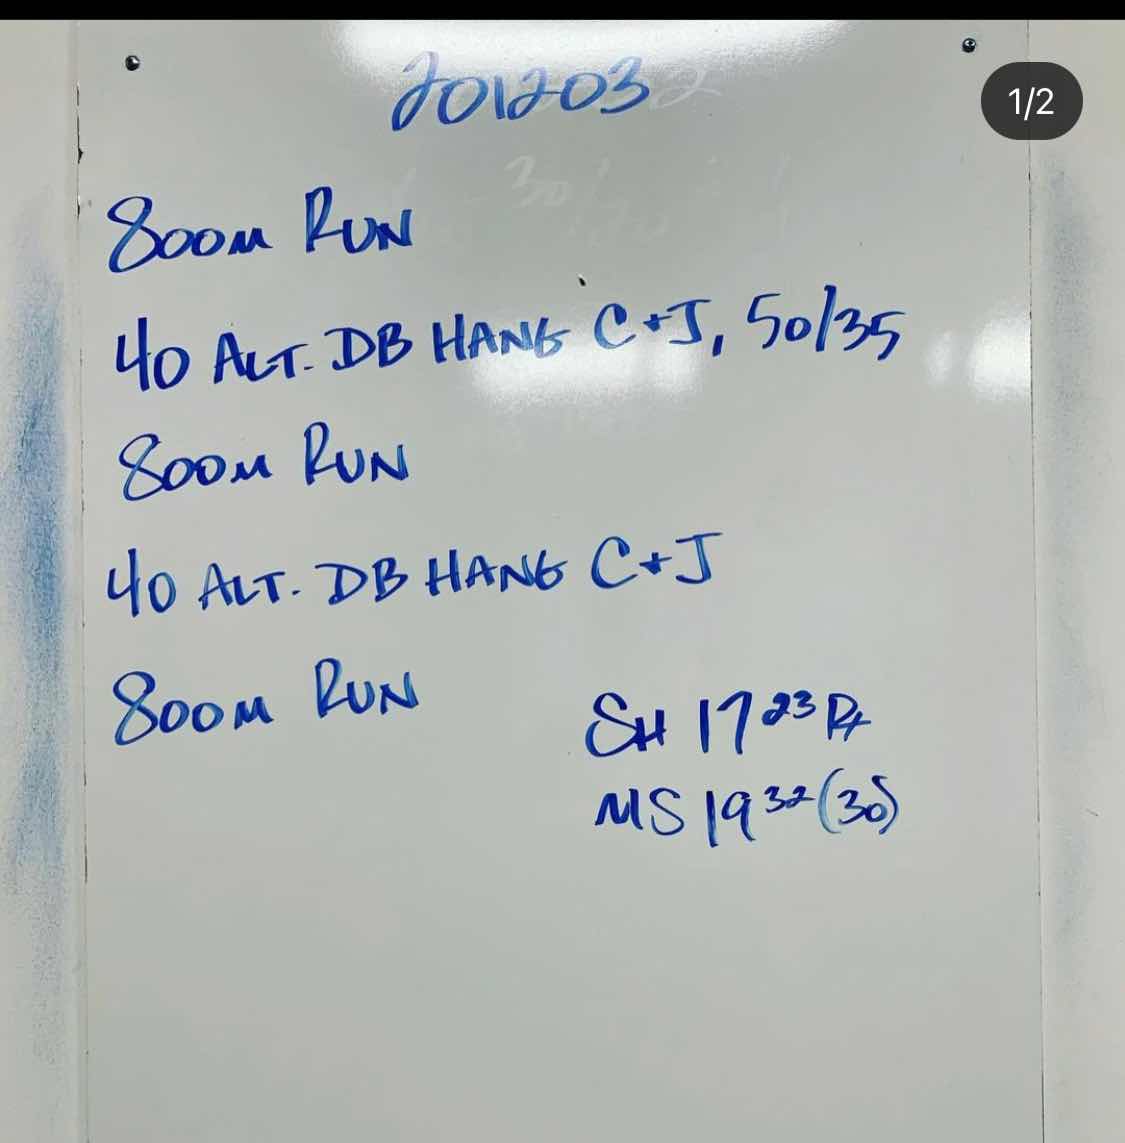 201203
1/2
800M RUN
40 ALT. DB HANG C+J, 50/35
800M RUN
40 ALT. DB HANG C+J
800M RUN
SH 17 23 Rx
MS 19 32 (30)